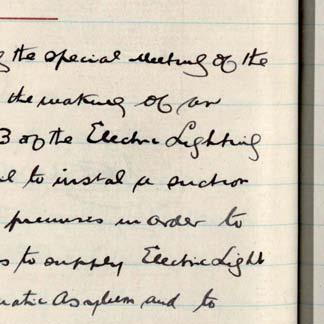 the special meeting of the
the making of an
3 of the Electric Lighting
to instal a suction
premises in order to
to supply Electric Light
Asylum and to